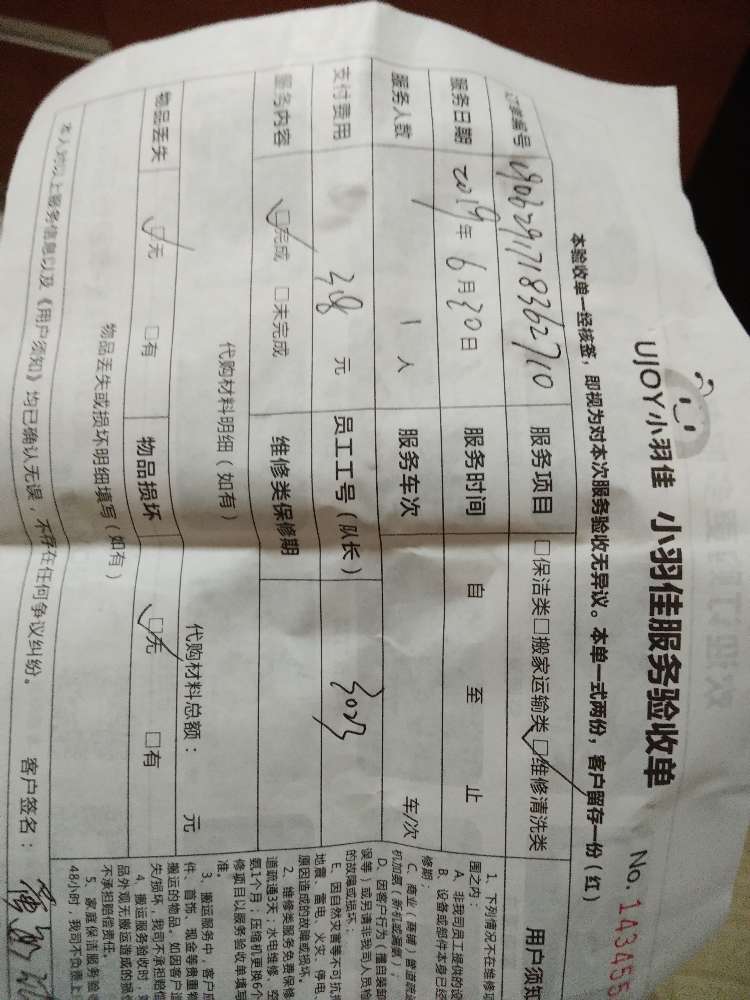 UJOY小羽佳 小羽佳服务验收单 No. 143455
本验收单一经核签，即视为对本次服务验收无异议。本单一式两份，客户留存一份（红）
订单编号 1906291718362710 服务项目 □保洁类□搬家运输类□维修清洗类
服务日期 2019年6月30日 服务时间 自 至 止
服务人数 1 人 服务车次 车/次
支付费用 元 员工工号（队长） 3023
服务内容 □完成 □未完成 维修类保修期
代购材料明细（如有） 代购材料总额： 元
物品丢失 □无 □有 物品损坏 □无 □有
物品丢失或损坏明细填写（如有）
本人对以上服务信息以及《用户须知》均已确认无误，不存在任何争议纠纷。 客户签名：
用户须知
1、下列情况不在维修
围之内：
A、非我司员工提供的
B、设备或部件本身已经
修期；
C、商业（商铺）管道疏
机加氨（新机或漏氨）；
D、因客户行为（擅自装卸
误等）或另请非我司人员
的故障或损坏；
E、因自然灾害等不可抗
地震、雷电、火灾、停电
原因造成的故障或损坏。
2、维修类服务免费保修
道疏通3天；水电维修、空
氨1个月；压缩机更换6个
修项目以服务验收单填写
准。
3、搬运服务中，客户应
件、首饰、现金等贵重物
搬运的物品。如因客户
失/损坏，我司不承担赔偿
4、搬运服务验收时，
品外观无搬运造成的损
不承担赔偿责任。
5、家庭保洁服务验
48小时，我司不负责上